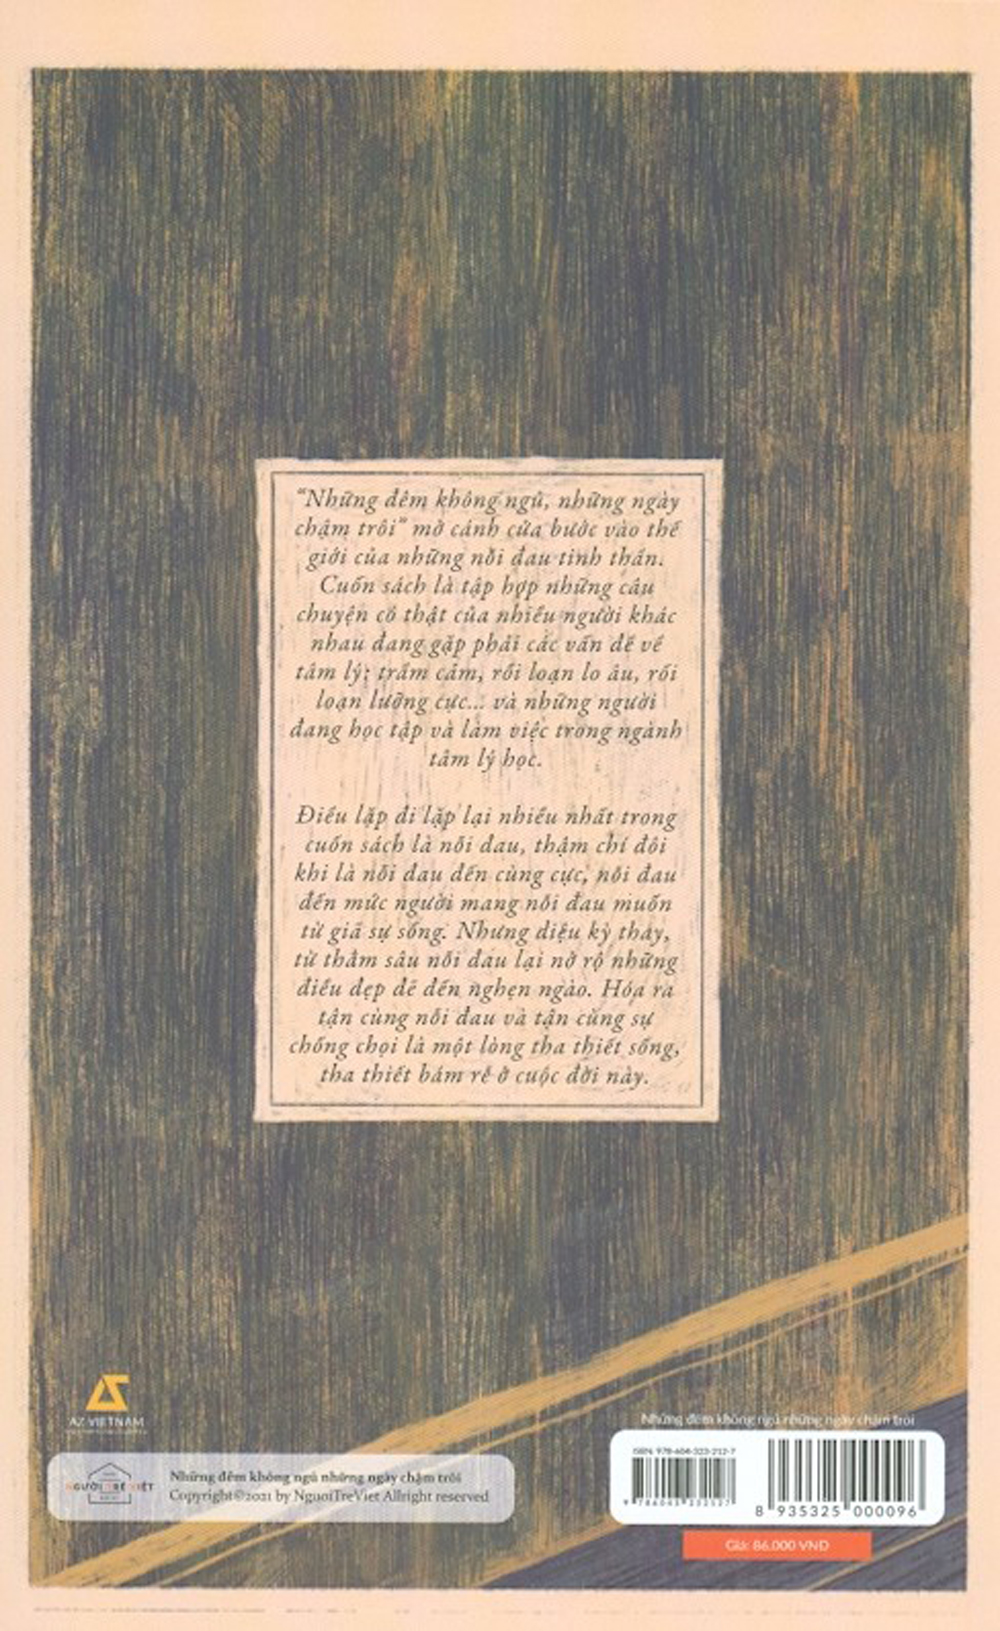 “Những đêm không ngủ, những ngày
chậm trôi” mở cánh cửa bước vào thế
giới của những nỗi đau tinh thần.
Cuốn sách là tập hợp những câu
chuyện có thật của nhiều người khác
nhau đang gặp phải các vấn đề về
tâm lý: trầm cảm, rối loạn lo âu, rối
loạn lưỡng cực... và những người
đang học tập và làm việc trong ngành
tâm lý học.
Điều lặp đi lặp lại nhiều nhất trong
cuốn sách là nỗi đau, thậm chí đôi
khi là nỗi đau đến cùng cực, nỗi đau
đến mức người mang nỗi đau muốn
từ giã sự sống. Nhưng diệu kỳ thay,
từ thẳm sâu nỗi đau lại nở rộ những
điều đẹp đẽ đến nghẹn ngào. Hóa ra
tận cùng nỗi đau và tận cùng sự
chống chọi là một lòng tha thiết sống,
tha thiết bám rễ ở cuộc đời này.
AZ VIETNAM
NGƯỜI TRẺ VIỆT
Những đêm không ngủ những ngày chậm trôi
Copyright©2021 by NguoiTreViet Allright reserved
Những đêm không ngủ những ngày chậm trôi
ISBN: 978-604-323-212-7
8 935325 000096
Giá: 86.000 VNĐ